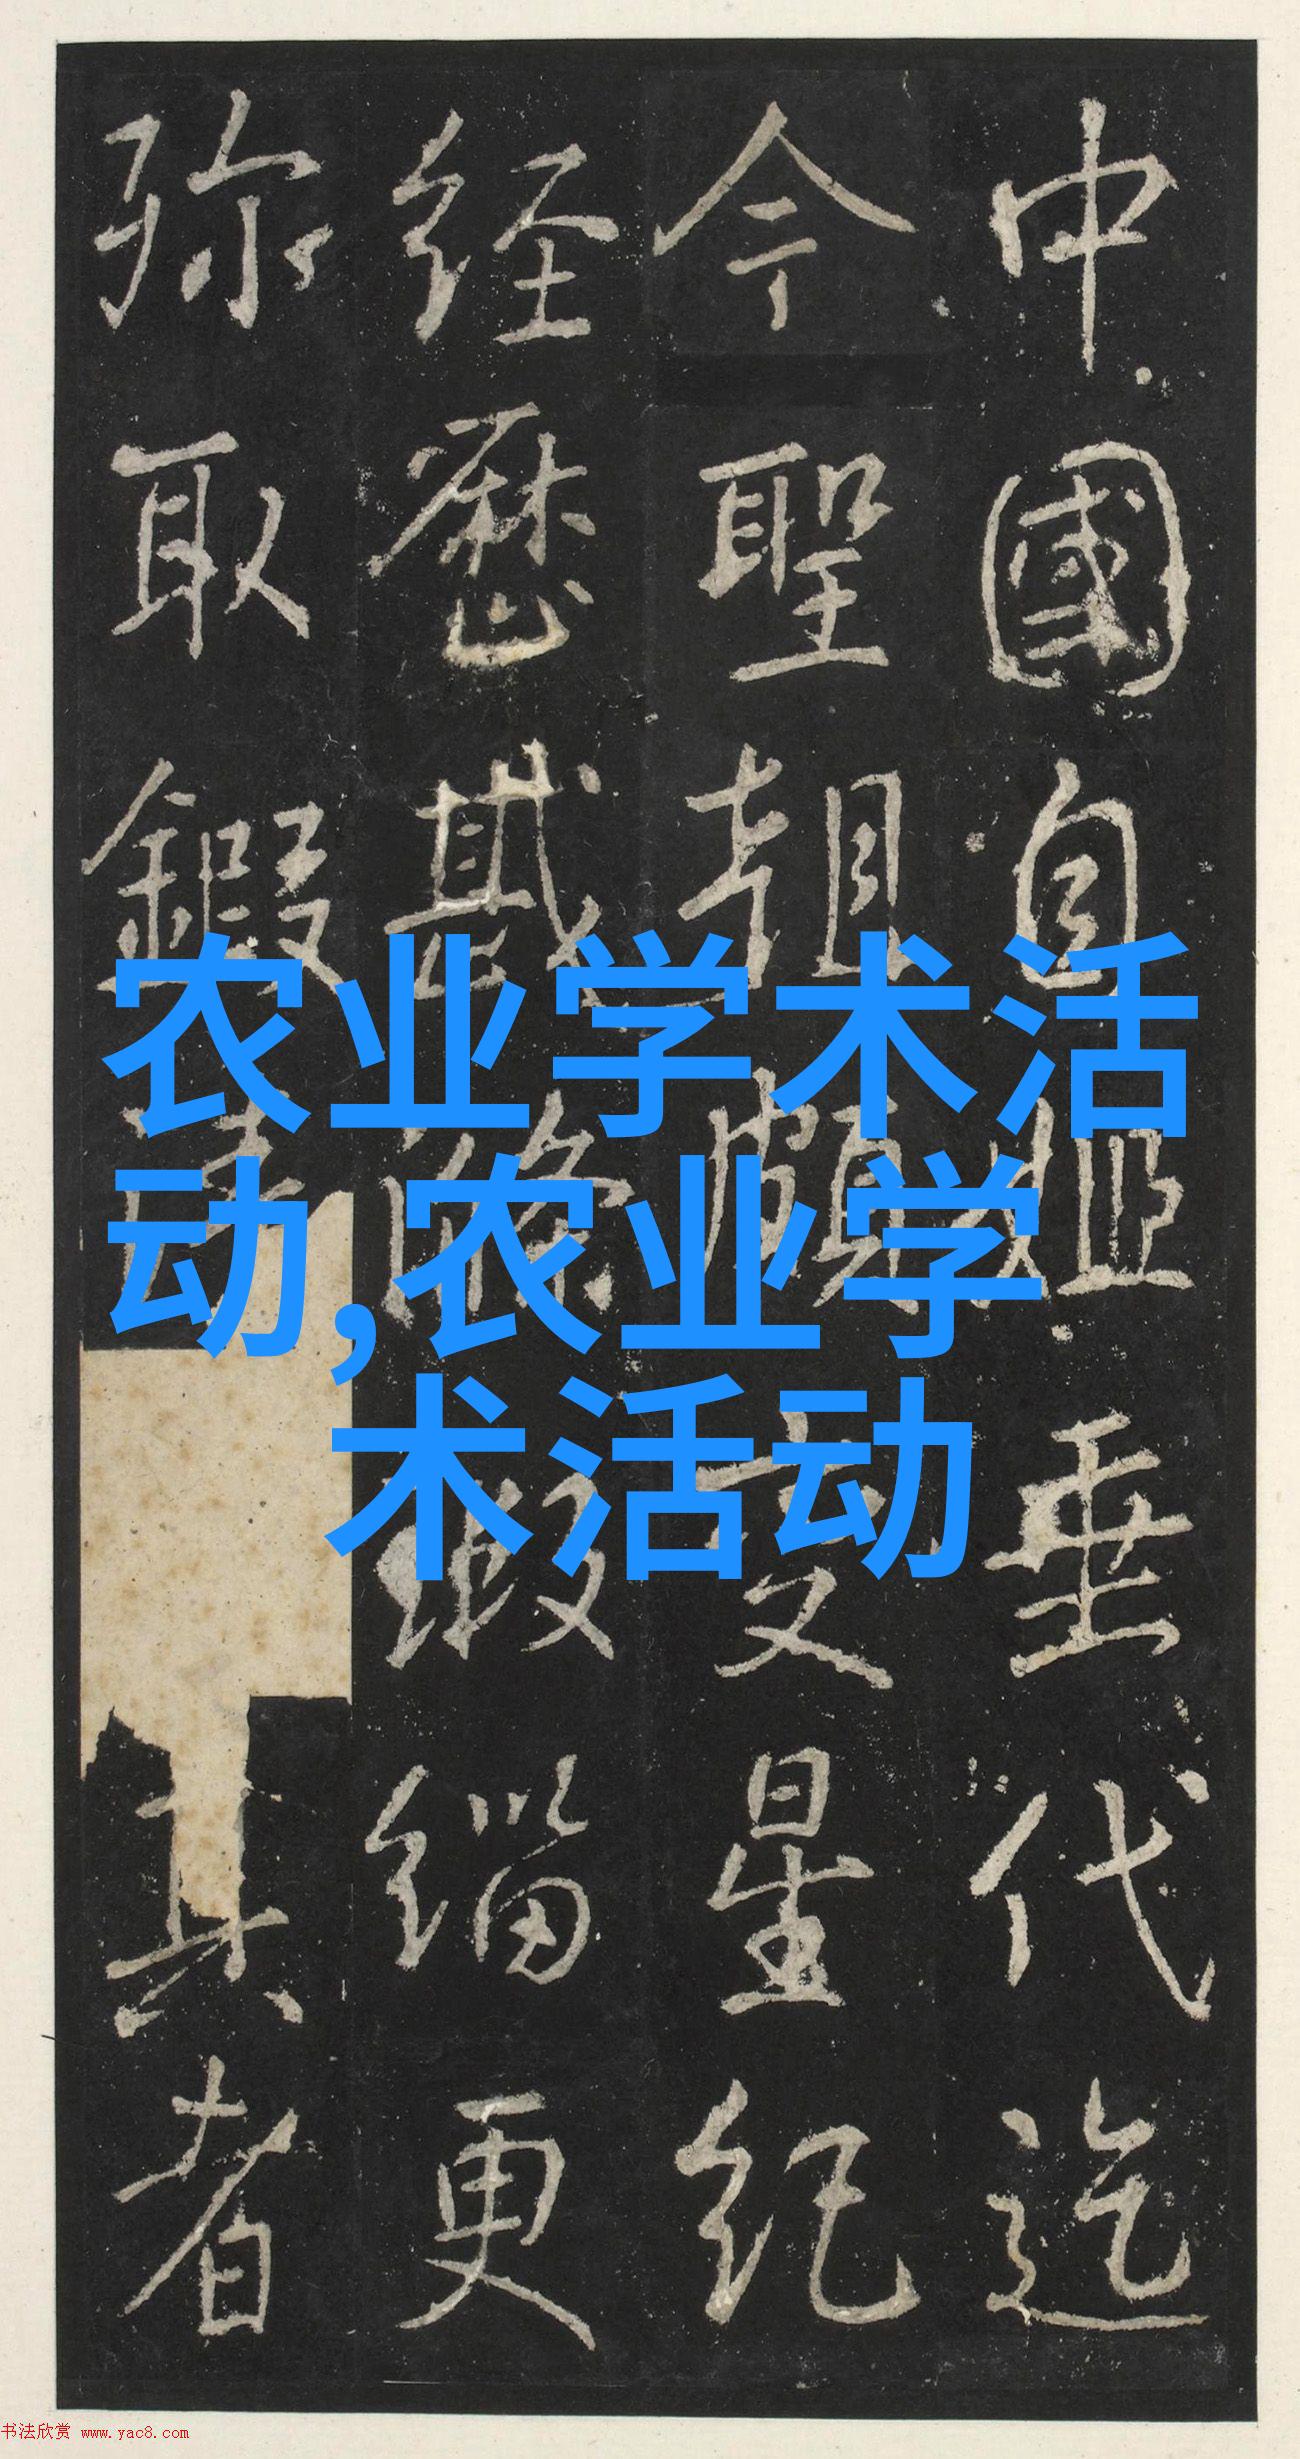 中國自垂代迄
今聖受星紀
经歷緇更
弥取鍜真者
农业学术活
动,农业学
术活动
书法欣赏 www.yac8.com